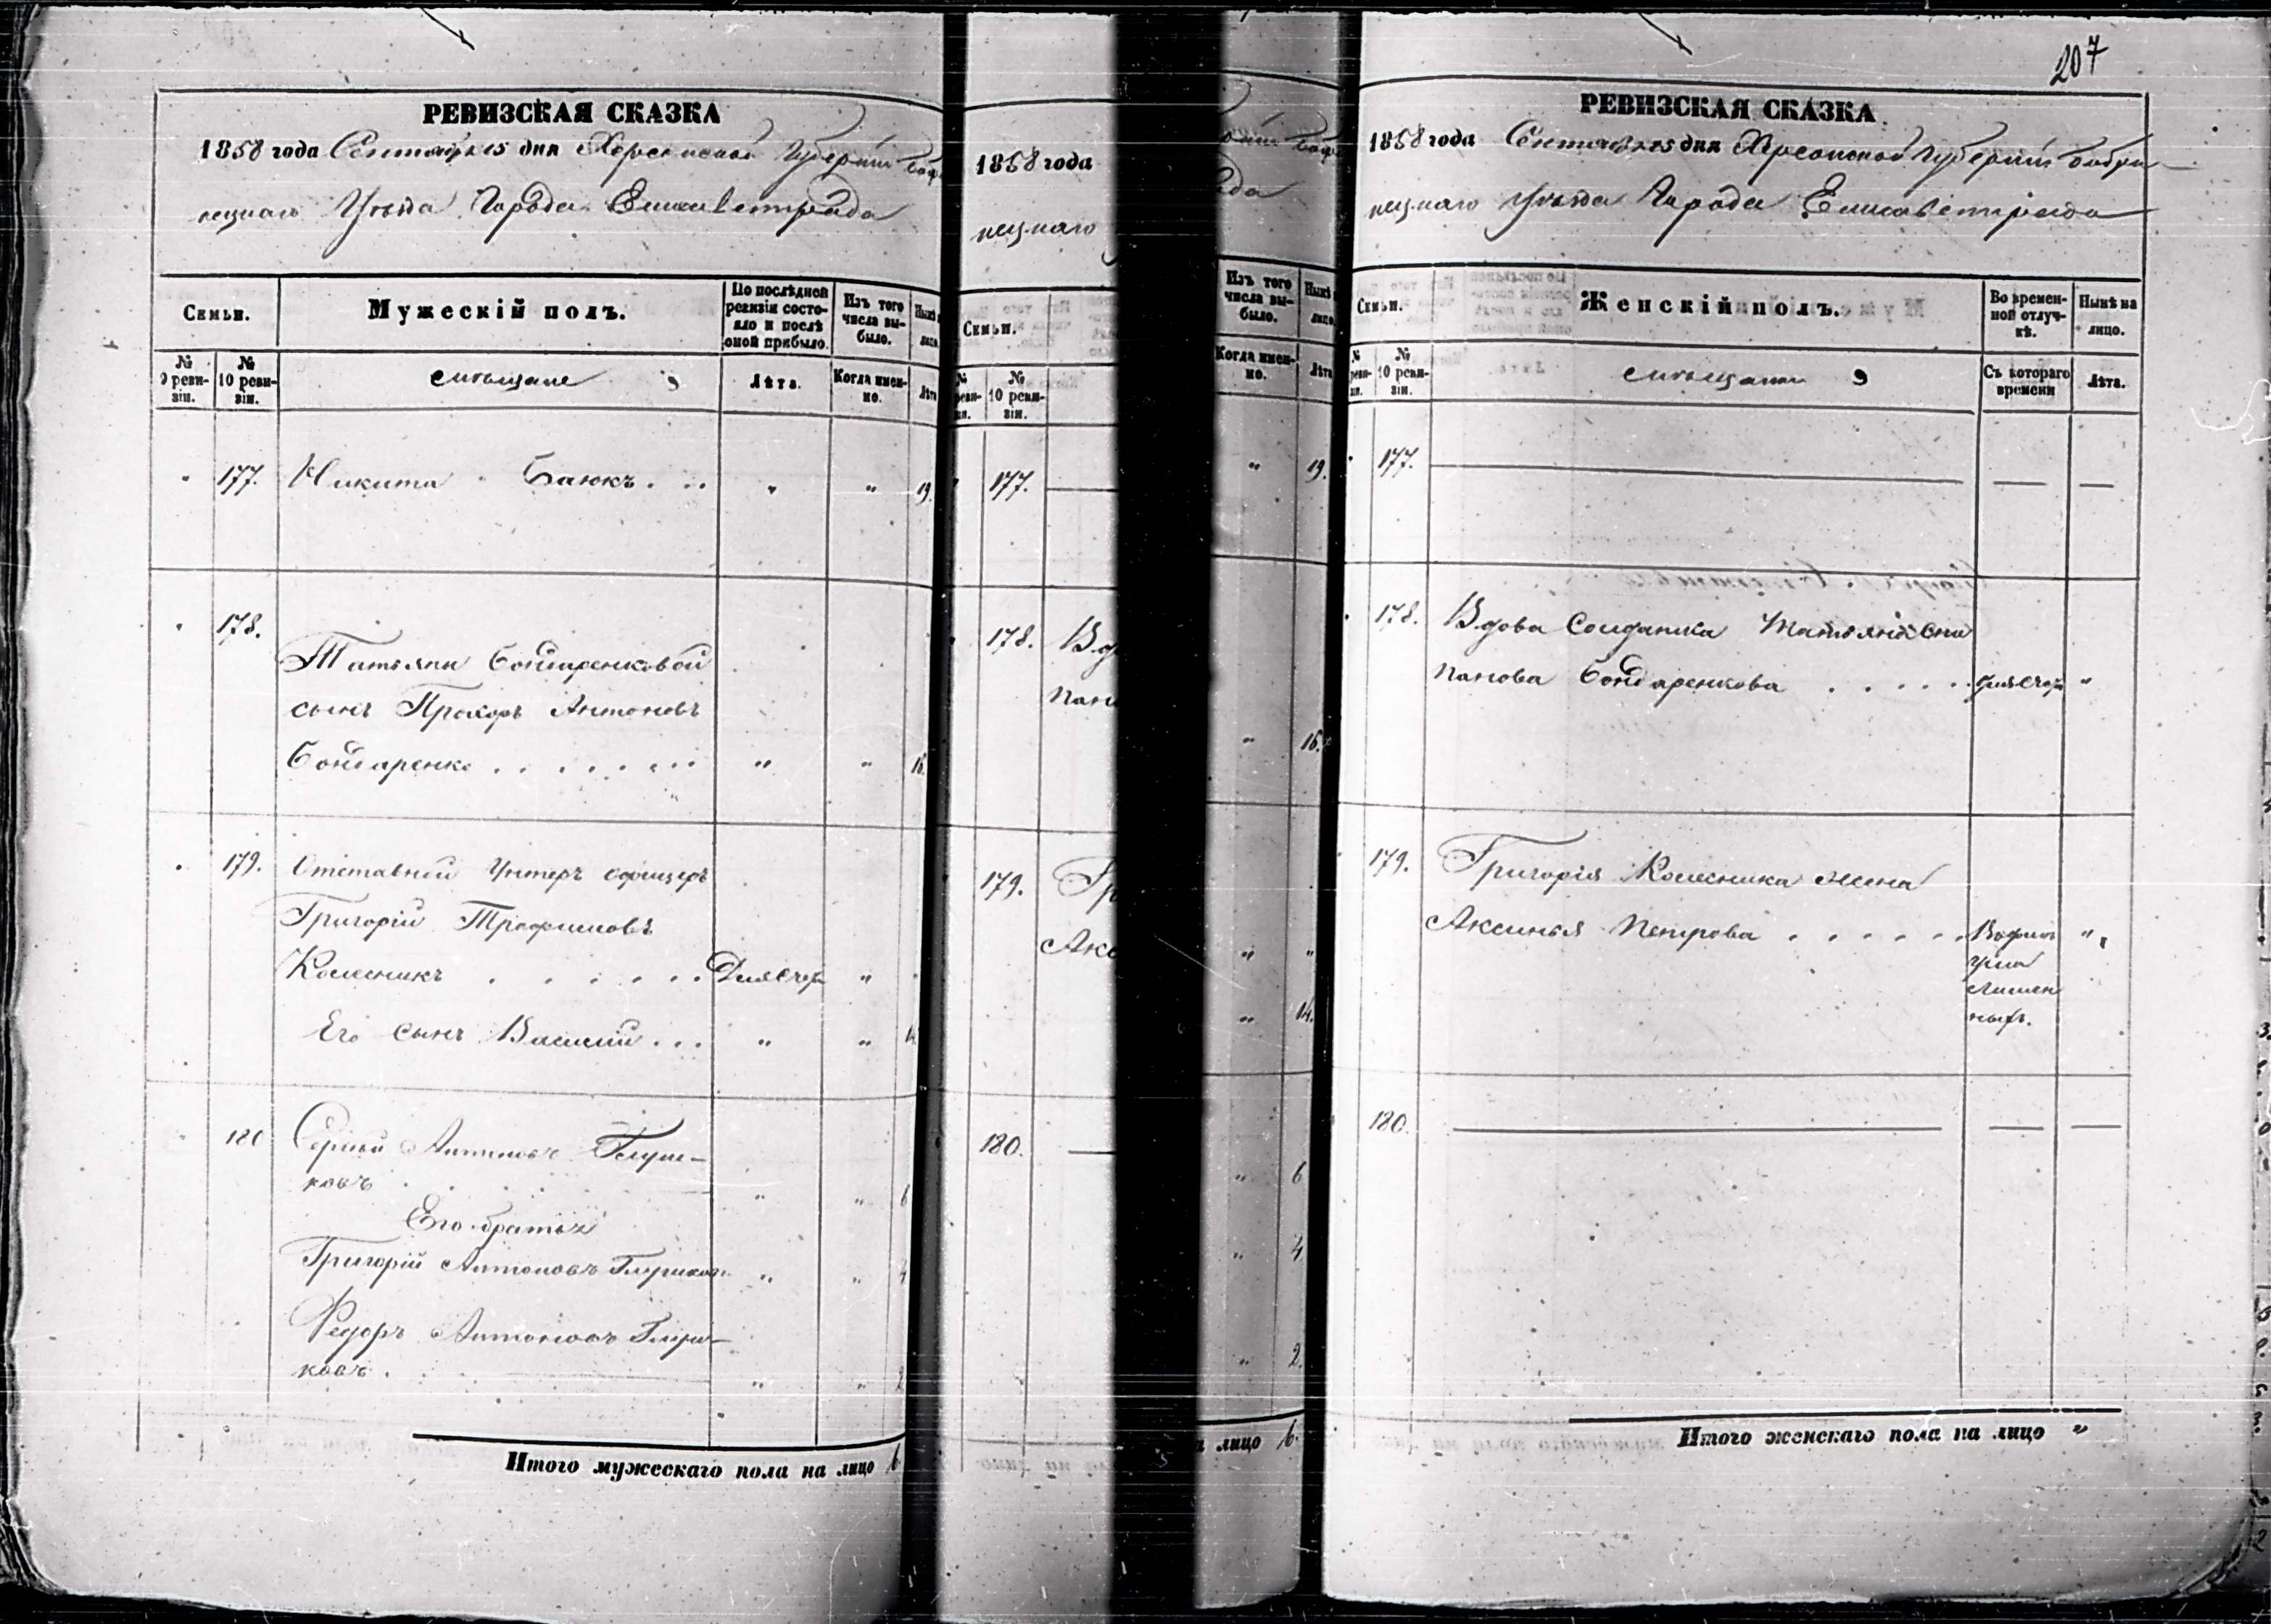 РЕВИЗСКАЯ СКАЗКА
1858 года Сентября 15 дня Херсонской Губерніи Боб
нецкаго Уѣзда Города Елисаветграда
Семьи.
Мужескій полъ.
По послѣдней ревизіи состояло и послѣ оной прибыло.
Изъ того числа выбыло.
Нынѣ
лицо
№ 9 ревизіи.
№ 10 ревизіи.
Мѣщане
Лѣта.
Когда именно.
Лѣта
" 177. Никита Баюкъ . . . " " 19.
178.
Татьяны Бондаренковой
сынъ Прохоръ Антоновъ
Бондаренко . . . . . . . " " 16.
179. Отставной Унтеръ офицеръ
Григорій Трофимовъ
Колесникъ . . . . . . "
Его сынъ Василій . . . " " 14.
180 Сергѣй Антоновъ Глуш-
ковъ . " " 6
Его братья
Григорій Антоновъ Глушковъ " " 4
Федоръ Антоновъ Глуш-
ковъ . " " 2
Итого мужескаго пола на лицо 6
1858 года
нецкаго
Семьи.
№ ревизіи.
№ 10 ревизіи.
177.
178. Вд
пано
179. Гр
Акс
180.
Изъ того числа выбыло.
Нынѣ
лицо
Когда именно.
Лѣта
" 19.
" 16.
" "
" 14.
" 6
" 4
" 2.
лицо 6.
207
РЕВИЗСКАЯ СКАЗКА
1858 года Сентября 15 дня Херсонской Губерніи Бобри
нецкаго Уѣзда Города Елисаветграда
Семьи.
Женскій полъ.
Во временной отлучкѣ.
Нынѣ на лицо.
№ ревизіи.
№ 10 ревизіи.
Мѣщанки
Съ котораго времени
Лѣта.
177.
178. Вдова Солдатка Татьяна Сте
панова Бондаренкова . . . . . "
179. Григорія Колесника жена
Аксинья Петрова . . . . . . "
180.
Итого женскаго пола на лицо "